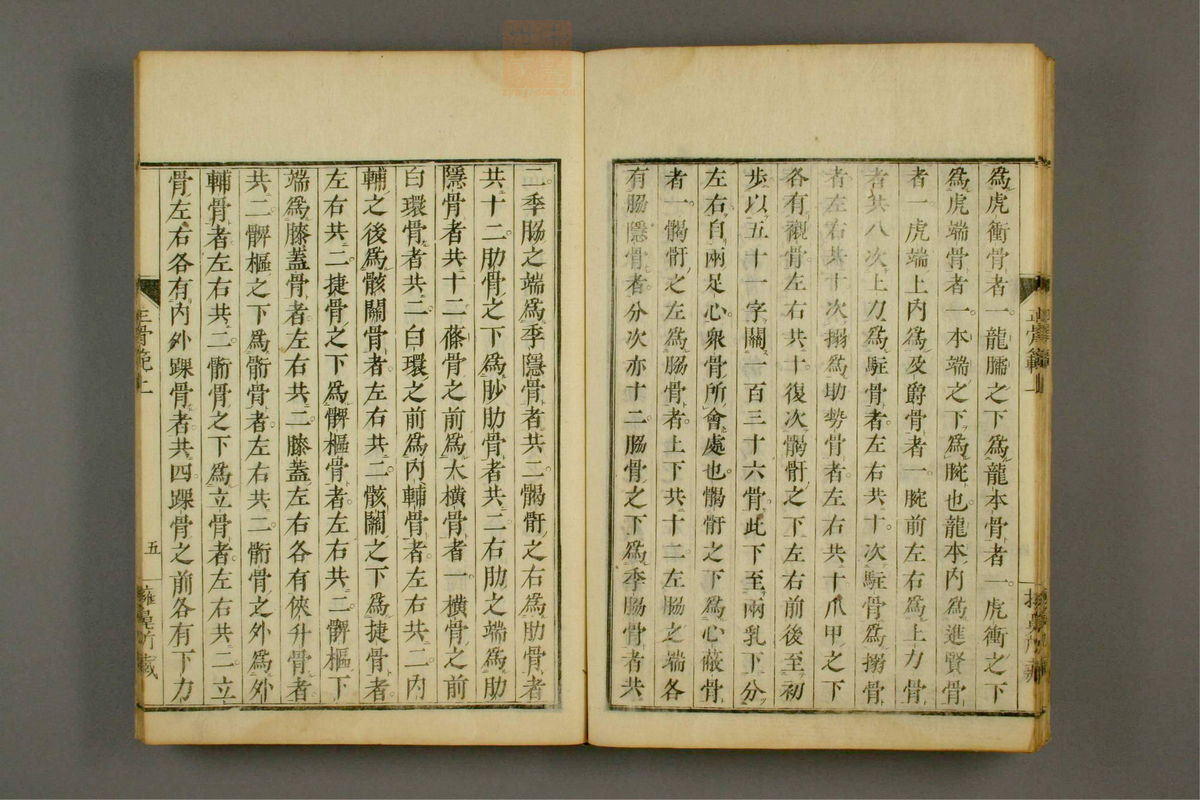 爲虎衝骨者一龍臑之下爲龍本骨者一虎衝之下
爲虎端骨者一本端之下爲腕也龍本內爲進賢骨
者一虎端上內爲及爵骨者一腕前左右爲上力骨
者共八次上力爲駐骨者左右共十次駐骨爲搦骨
者左右共十次搦爲助勢骨者左右共十爪甲之下
各有襯骨左右共十復次髑骬之下左右前後至初
步以五十一字關一百三十六骨此下至兩乳下分
左右自兩足心衆骨所會處也髑骬之下爲心蔽骨
者一髑骬之左爲脇骨者上下共十二左脇之端各
有脇隱骨者分次亦十二脇骨之下爲季脇骨者共
二季脇之端爲季隱骨者共二髑骬之右爲肋骨者
共十二肋骨之下爲䏚肋骨者共二右肋之端爲肋
隱骨者共十二篠骨之前爲大橫骨者一橫骨之前
白環骨者共二白環之前爲內輔骨者左右共二內
輔之後爲骸關骨者左右共二骸關之下爲捷骨者
左右共二捷骨之下爲髀樞骨者左右共二髀樞下
端爲膝蓋骨者左右共二膝蓋左右各有俠升骨者
共二髀樞之下爲䯒骨者左右共二䯒骨之外爲外
輔骨者左右共二䯒骨之下爲立骨者左右共二立
骨左右各有內外踝骨者共四踝骨之前各有下力
正骨範上
五